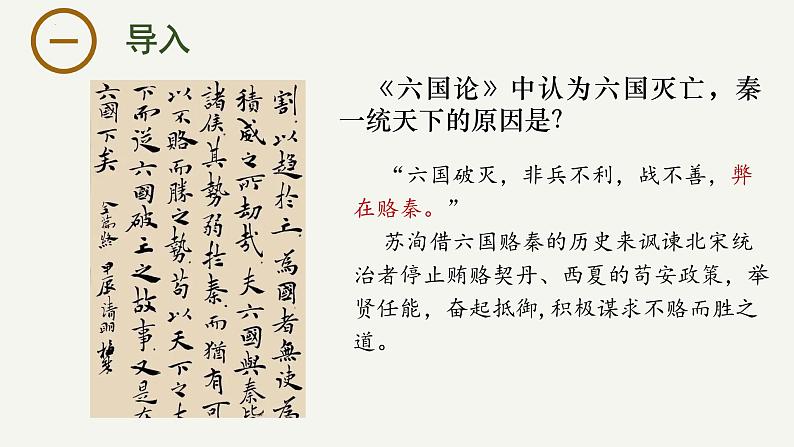 一 导入
割以趨於亡為國者無使為
積威之所劫哉夫六國與秦皆
諸侯其勢弱於秦而猶有
以不賂而勝之勢苟以天下之
下而從六國破亡之故事又是在
六國下矣
甲辰清明
《六国论》中认为六国灭亡，秦
一统天下的原因是？
“六国破灭，非兵不利，战不善，弊
在赂秦。”
苏洵借六国赂秦的历史来讽谏北宋统
治者停止贿赂契丹、西夏的苟安政策，举
贤任能，奋起抵御,积极谋求不赂而胜之
道。